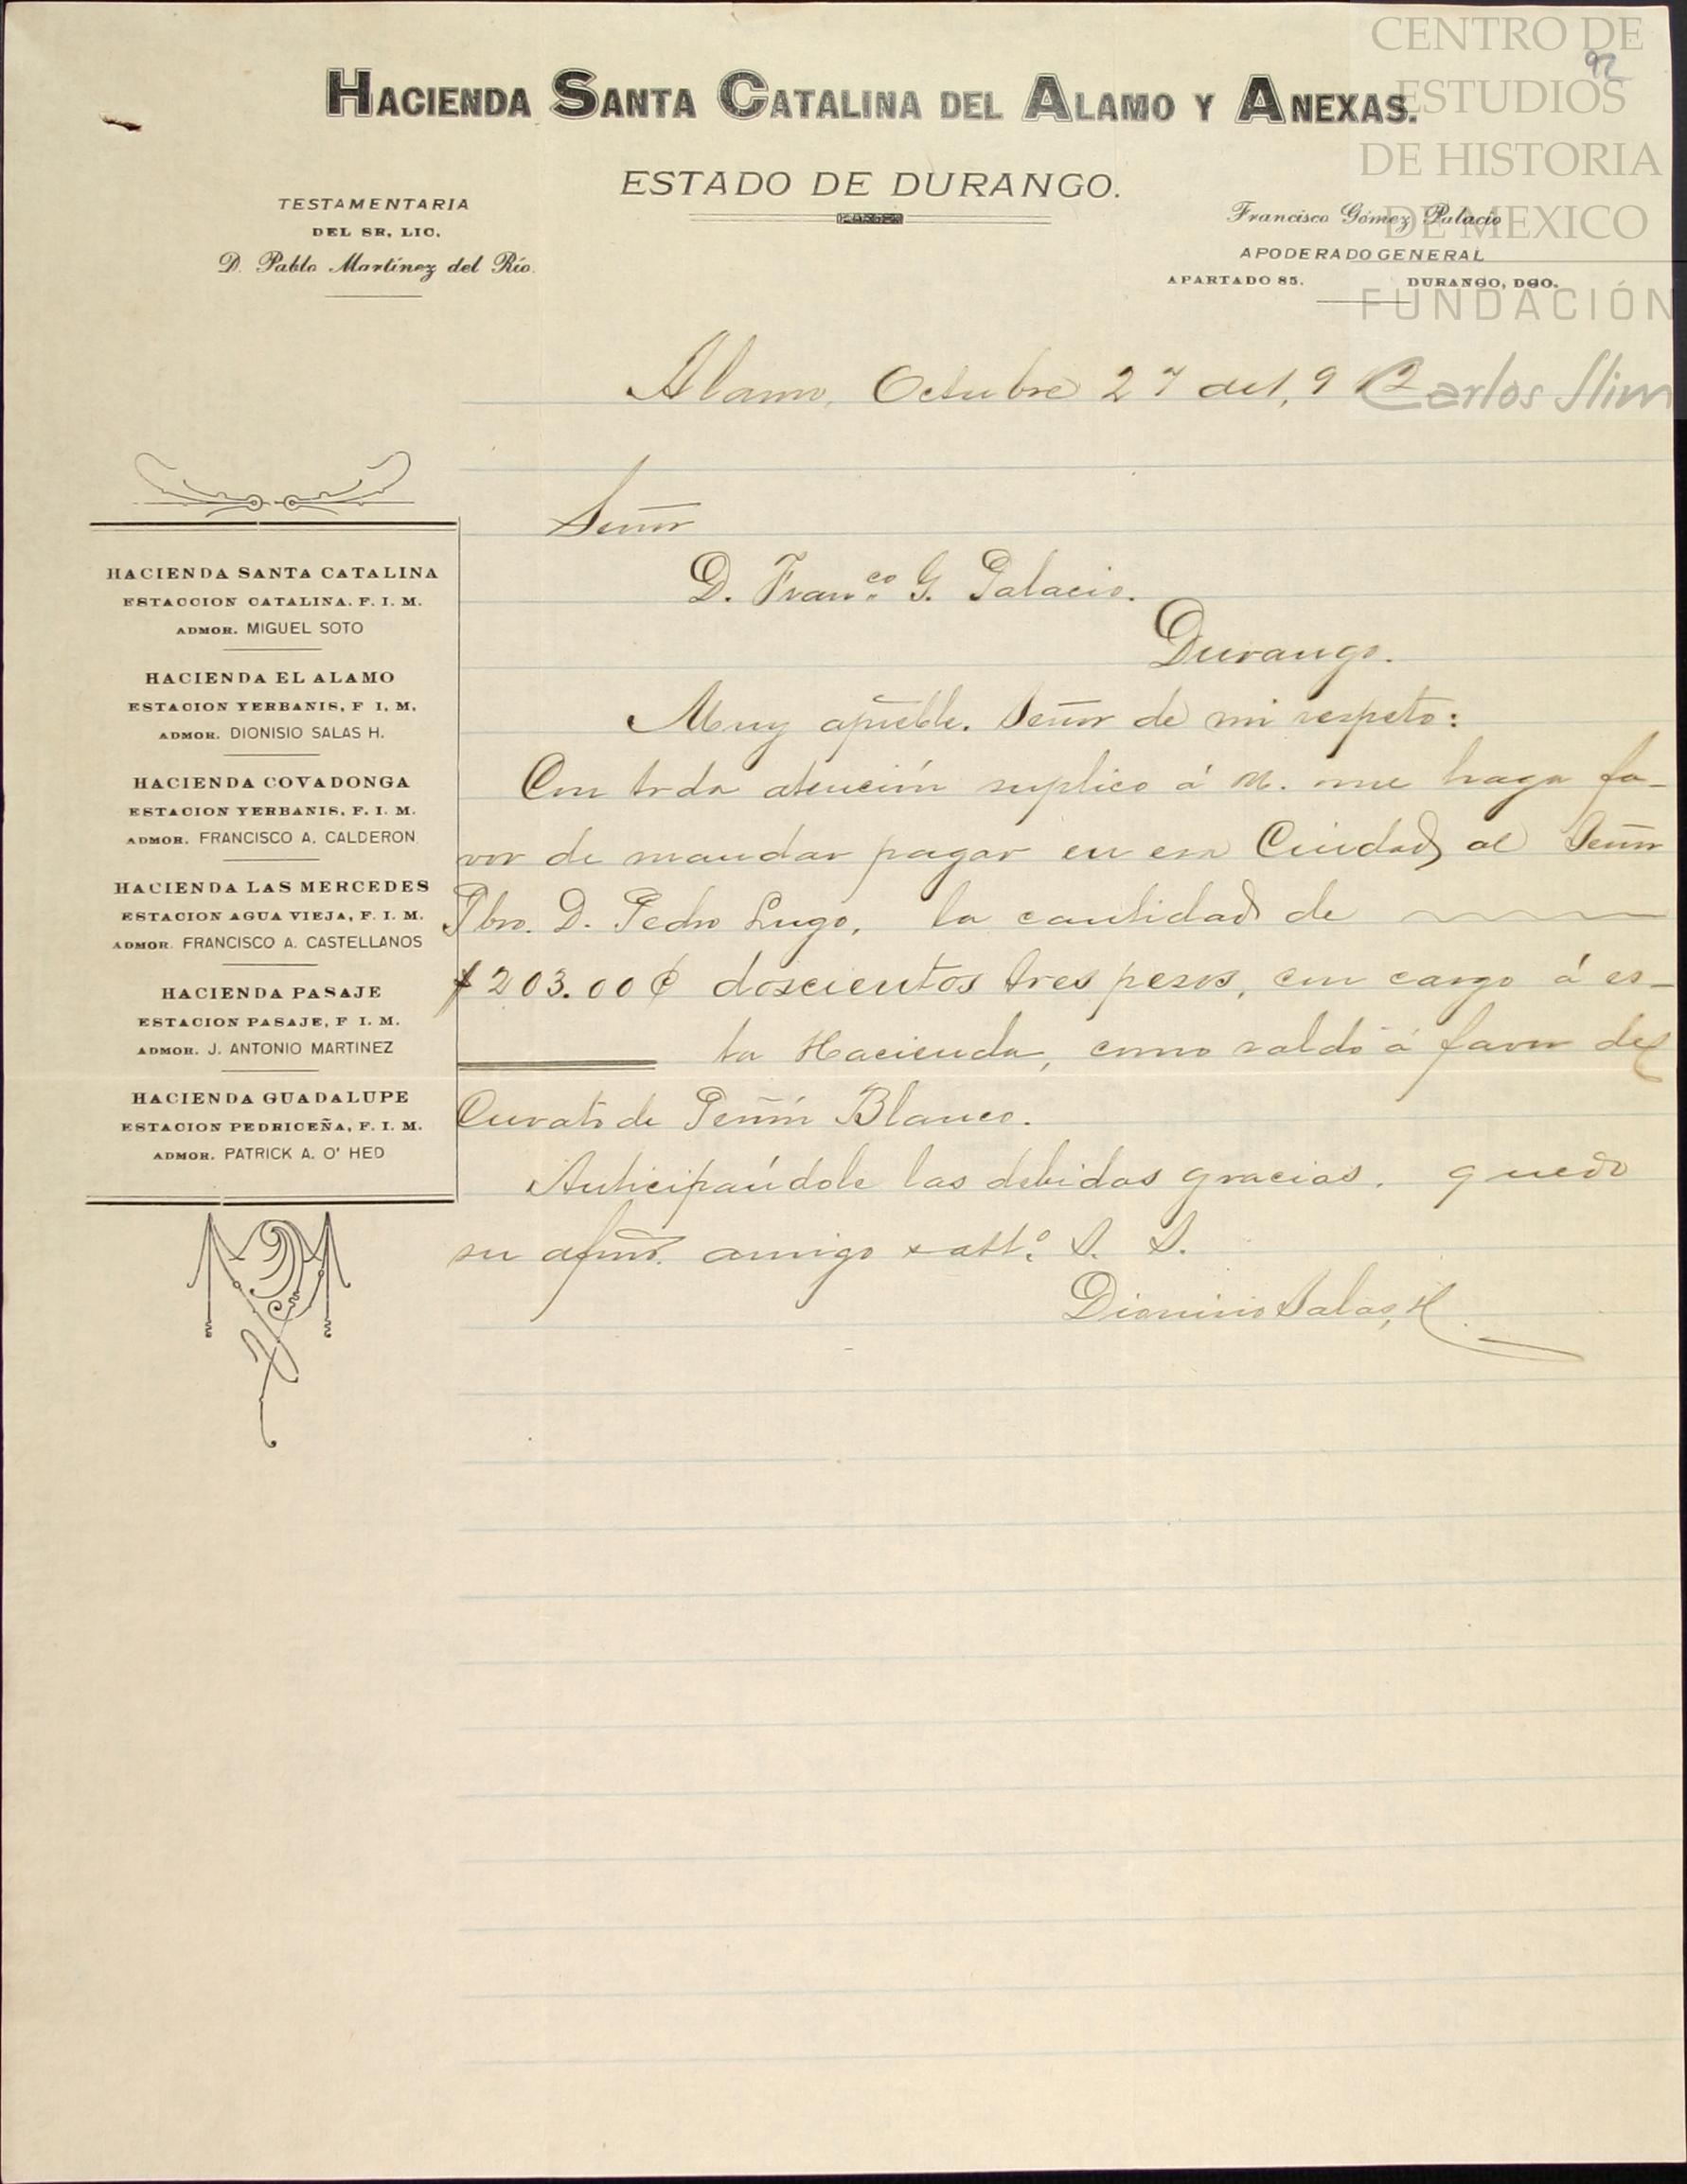 CENTRO DE
ESTUDIOS
DE HISTORIA
DE MEXICO
FUNDACIÓN
Carlos Slim
92
HACIENDA SANTA CATALINA DEL ALAMO Y ANEXAS.
ESTADO DE DURANGO.
TESTAMENTARIA
DEL SR. LIC.
D. Pablo Martínez del Río.
Francisco Gómez Palacio
APODERADO GENERAL
APARTADO 85. DURANGO, DGO.
Alamo, Octubre 27 de 1,912
HACIENDA SANTA CATALINA
ESTACCION CATALINA. F. I. M.
ADMOR. MIGUEL SOTO
HACIENDA EL ALAMO
ESTACION YERBANIS, F I. M.
ADMOR. DIONISIO SALAS H.
HACIENDA COVADONGA
ESTACION YERBANIS, F. I. M.
ADMOR. FRANCISCO A. CALDERON
HACIENDA LAS MERCEDES
ESTACION AGUA VIEJA, F. I. M.
ADMOR. FRANCISCO A. CASTELLANOS
HACIENDA PASAJE
ESTACION PASAJE, F I. M.
ADMOR. J. ANTONIO MARTINEZ
HACIENDA GUADALUPE
ESTACION PEDRICEÑA, F. I. M.
ADMOR. PATRICK A. O' HED
Señor
D. Franco. G. Palacio.
Durango.
Muy apreble. Señor de mi respeto:
Con toda atención suplico á U. me haga fa-
vor de mandar pagar en esa Ciudad al Señor
Pbro. D. Pedro Lugo, la cantidad de
$203.00 ¢ doscientos tres pesos, con cargo á es-
ta Hacienda, como saldo á favor del
Curato de Peñón Blanco.
Anticipándole las debidas gracias, quedo
su afmo. amigo y atto. S. S.
Dionisio Salas, H